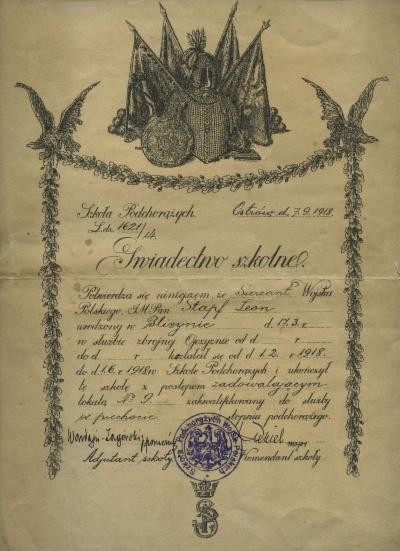 Szkoła Podchorążych. Ostrów d. 7.9.1918.
L.dz. 1621/14
Świadectwo szkolne.
Potwierdza się niniejszem, że Sierżant Wojska
Polskiego, J.M.Pan Stapf Leon
urodzony w d. 17.3. r
w służbie zbrojnej Ojczyźnie od d. r
do d. r kształcił się od d. 1.2. r. 1918.
do d. 1.6. r. 1918 w Szkole Podchorążych i ukończył
tę szkołę z postępem zadowalającym
lokatą Nº 9. zakwalifikowany do służby
w piechocie stopniu podchorążego.
Adjutant szkoły Komendant szkoły.
Szkoła Podchorążych Wojsk Polskich
SP